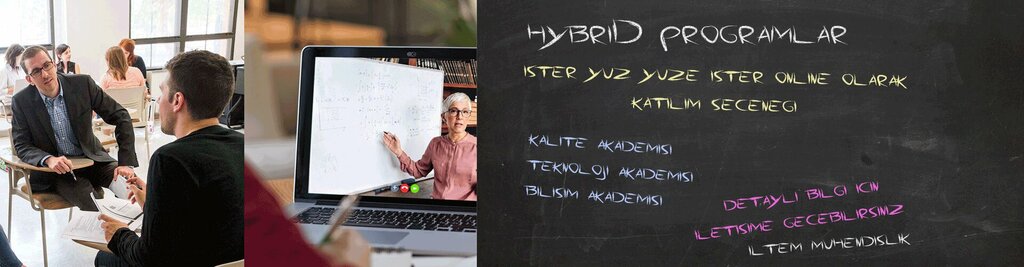 HYBRID PROGRAMLAR
ISTER YUZ YUZE ISTER ONLINE OLARAK
KATILIM SECENEGI
KALITE AKADEMISI
TEKNOLOJI AKADEMISI
BILISIM AKADEMISI
DETAYLI BILGI ICIN
ILETISIME GECEBILIRSINIZ
ILTEM MUHENDISLIK